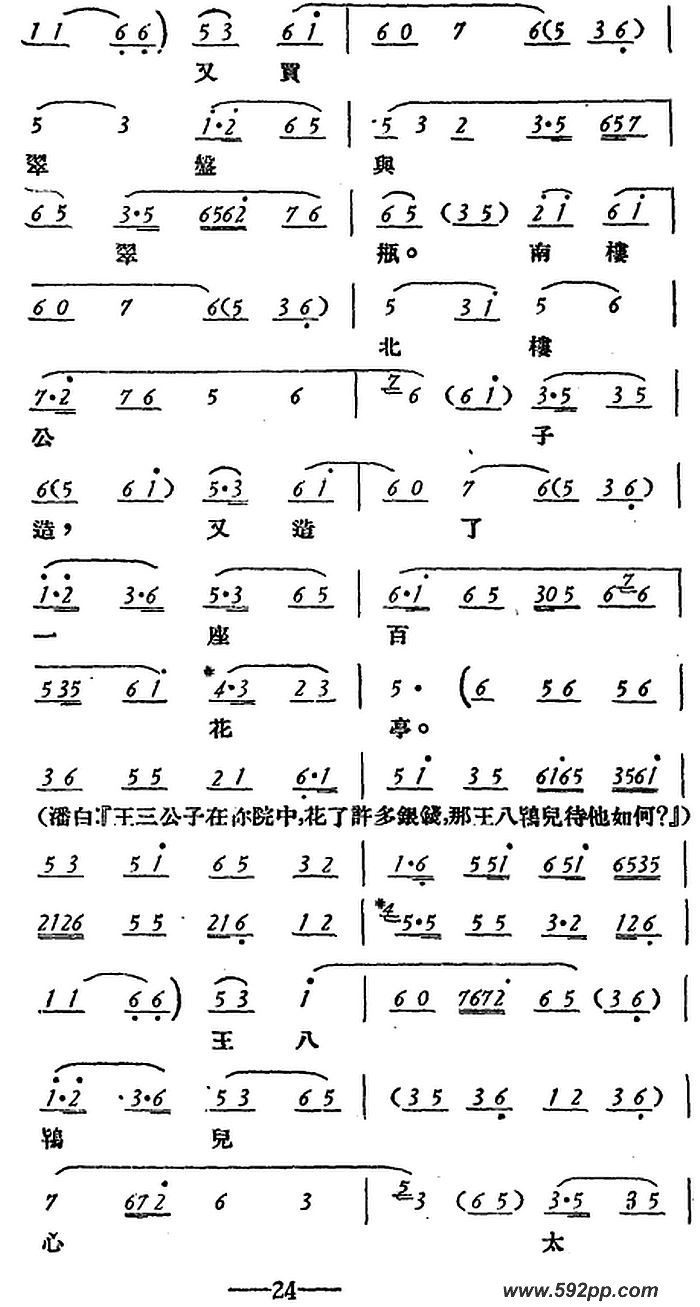 1 1 6 6) 5 3 6 i | 6 0 7 6(5 3 6) |
又 買
5 3 i·2 6 5 | 5 3 2 3·5 657 |
翠 盤 與
6 5 3·5 6562 7 6 | 6 5 (3 5) 2 i 6 i |
翠 瓶。 南 樓
6 0 7 6(5 3 6) | 5 3 i 5 6 |
北 樓
7·2 7 6 5 6 | 7 6 (6 i) 3·5 3 5 |
公 子
6(5 6 i) 5·3 6 i | 6 0 7 6(5 3 6) |
造, 又 造 了
i·2 3·6 5·3 6 5 | 6·i 6 5 305 6 7 6 |
一 座 百
535 6 i *4·3 2 3 | 5· (6 5 6 5 6 |
花 亭。
3 6 5 5 2 1 6·1 | 5 i 3 5 6i65 356i |
(潘白:『王三公子在你院中,花了許多銀錢,那王八鴇兒待他如何?』)
5 3 5 i 6 5 3 2 | 1·6 55i 65i 6535 |
2126 5 5 216 1 2 | *4 5·5 5 5 3·2 126 |
1 1 6 6) 5 3 i | 6 0 7672 6 5 (3 6) |
王 八
i·2 3·6 5 3 6 5 | (3 5 3 6 1 2 3 6) |
鴇 兒
7 672 6 3 | 5 3 (6 5) 3·5 3 5 |
心 太
—24—
www.592pp.com